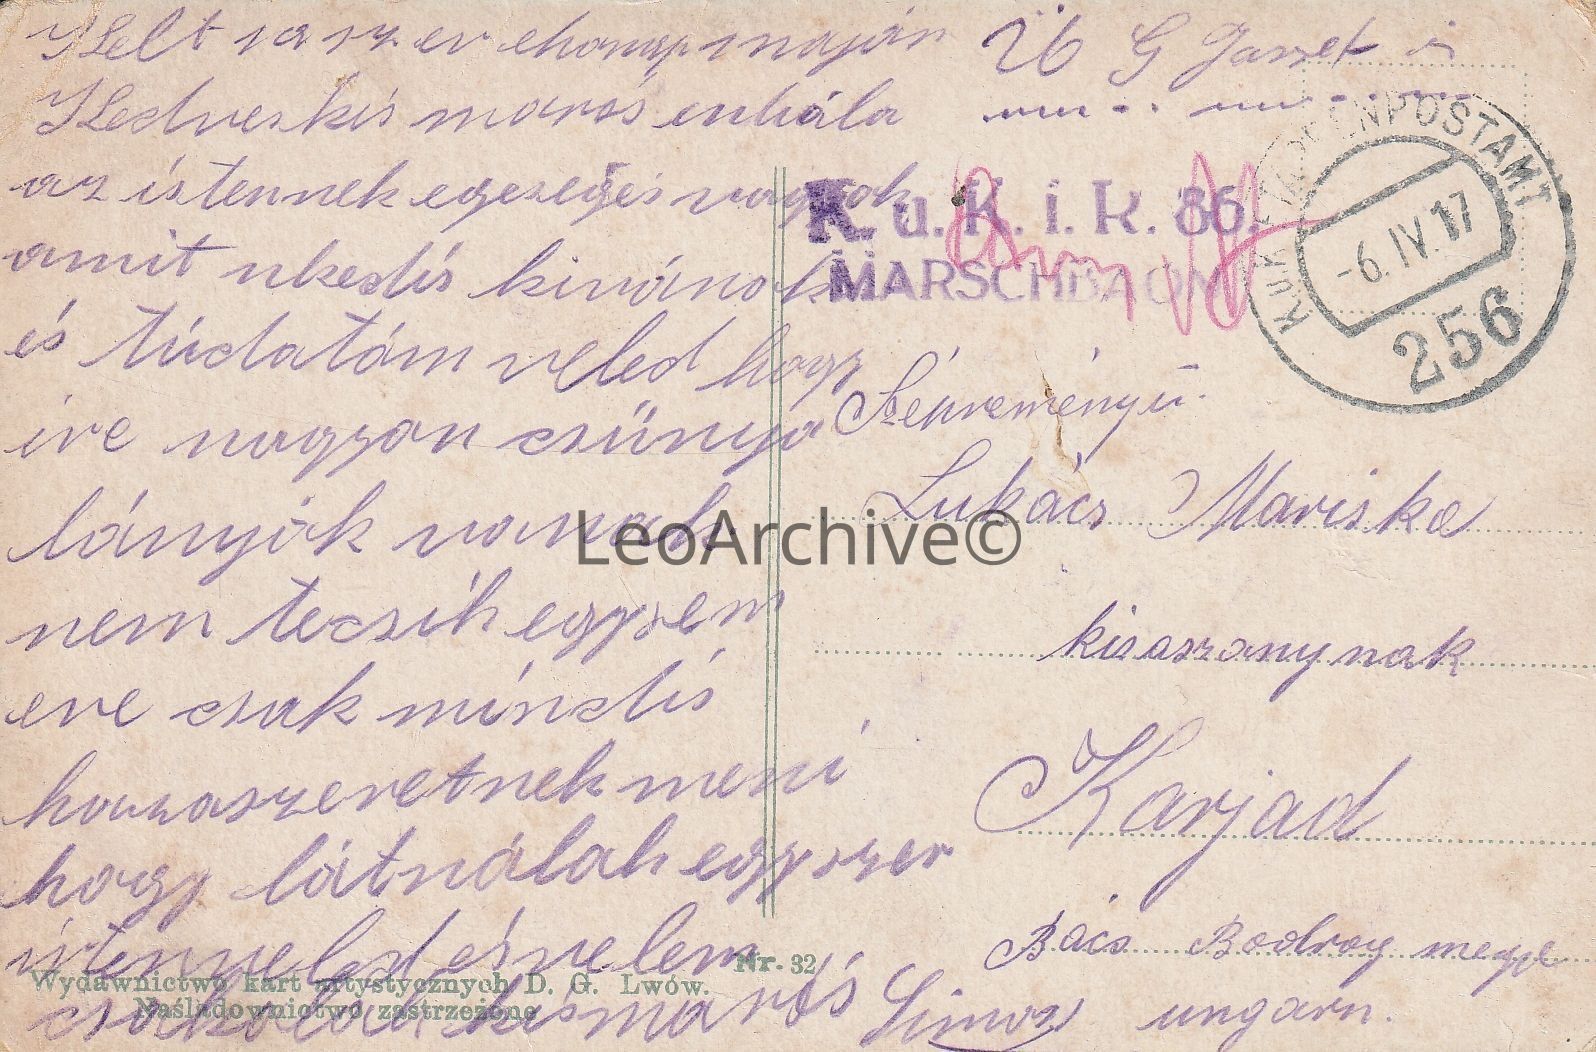 Kelt sa sz er ehonap maján
Kedves kis marós enhála
az istennek egeségés vagyok
amit nkedis kivánok
és túdatám veled hogy
ire nagyon csúnya
lányok vanak
nem tecsik egysem
ere csak míndís
hazaszeretnek meni
hogy látnálak egyszer
istenyeled és velem
csakolad kismarós Simon
Ü G Jaszet
K. u. K. i. R. 86.
MARSCHBAON
K.u.K. FELDPOSTAMT
-6.IV.17
256
Szépreményü
Lukács Mariska
kisaszonynak
Karjad
Bács Bodrog megye
ungarn.
Nr. 32
Wydawnictwo kart artystycznych D. G. Lwów.
Naśladownictwo zastrzeżone
LeoArchive©